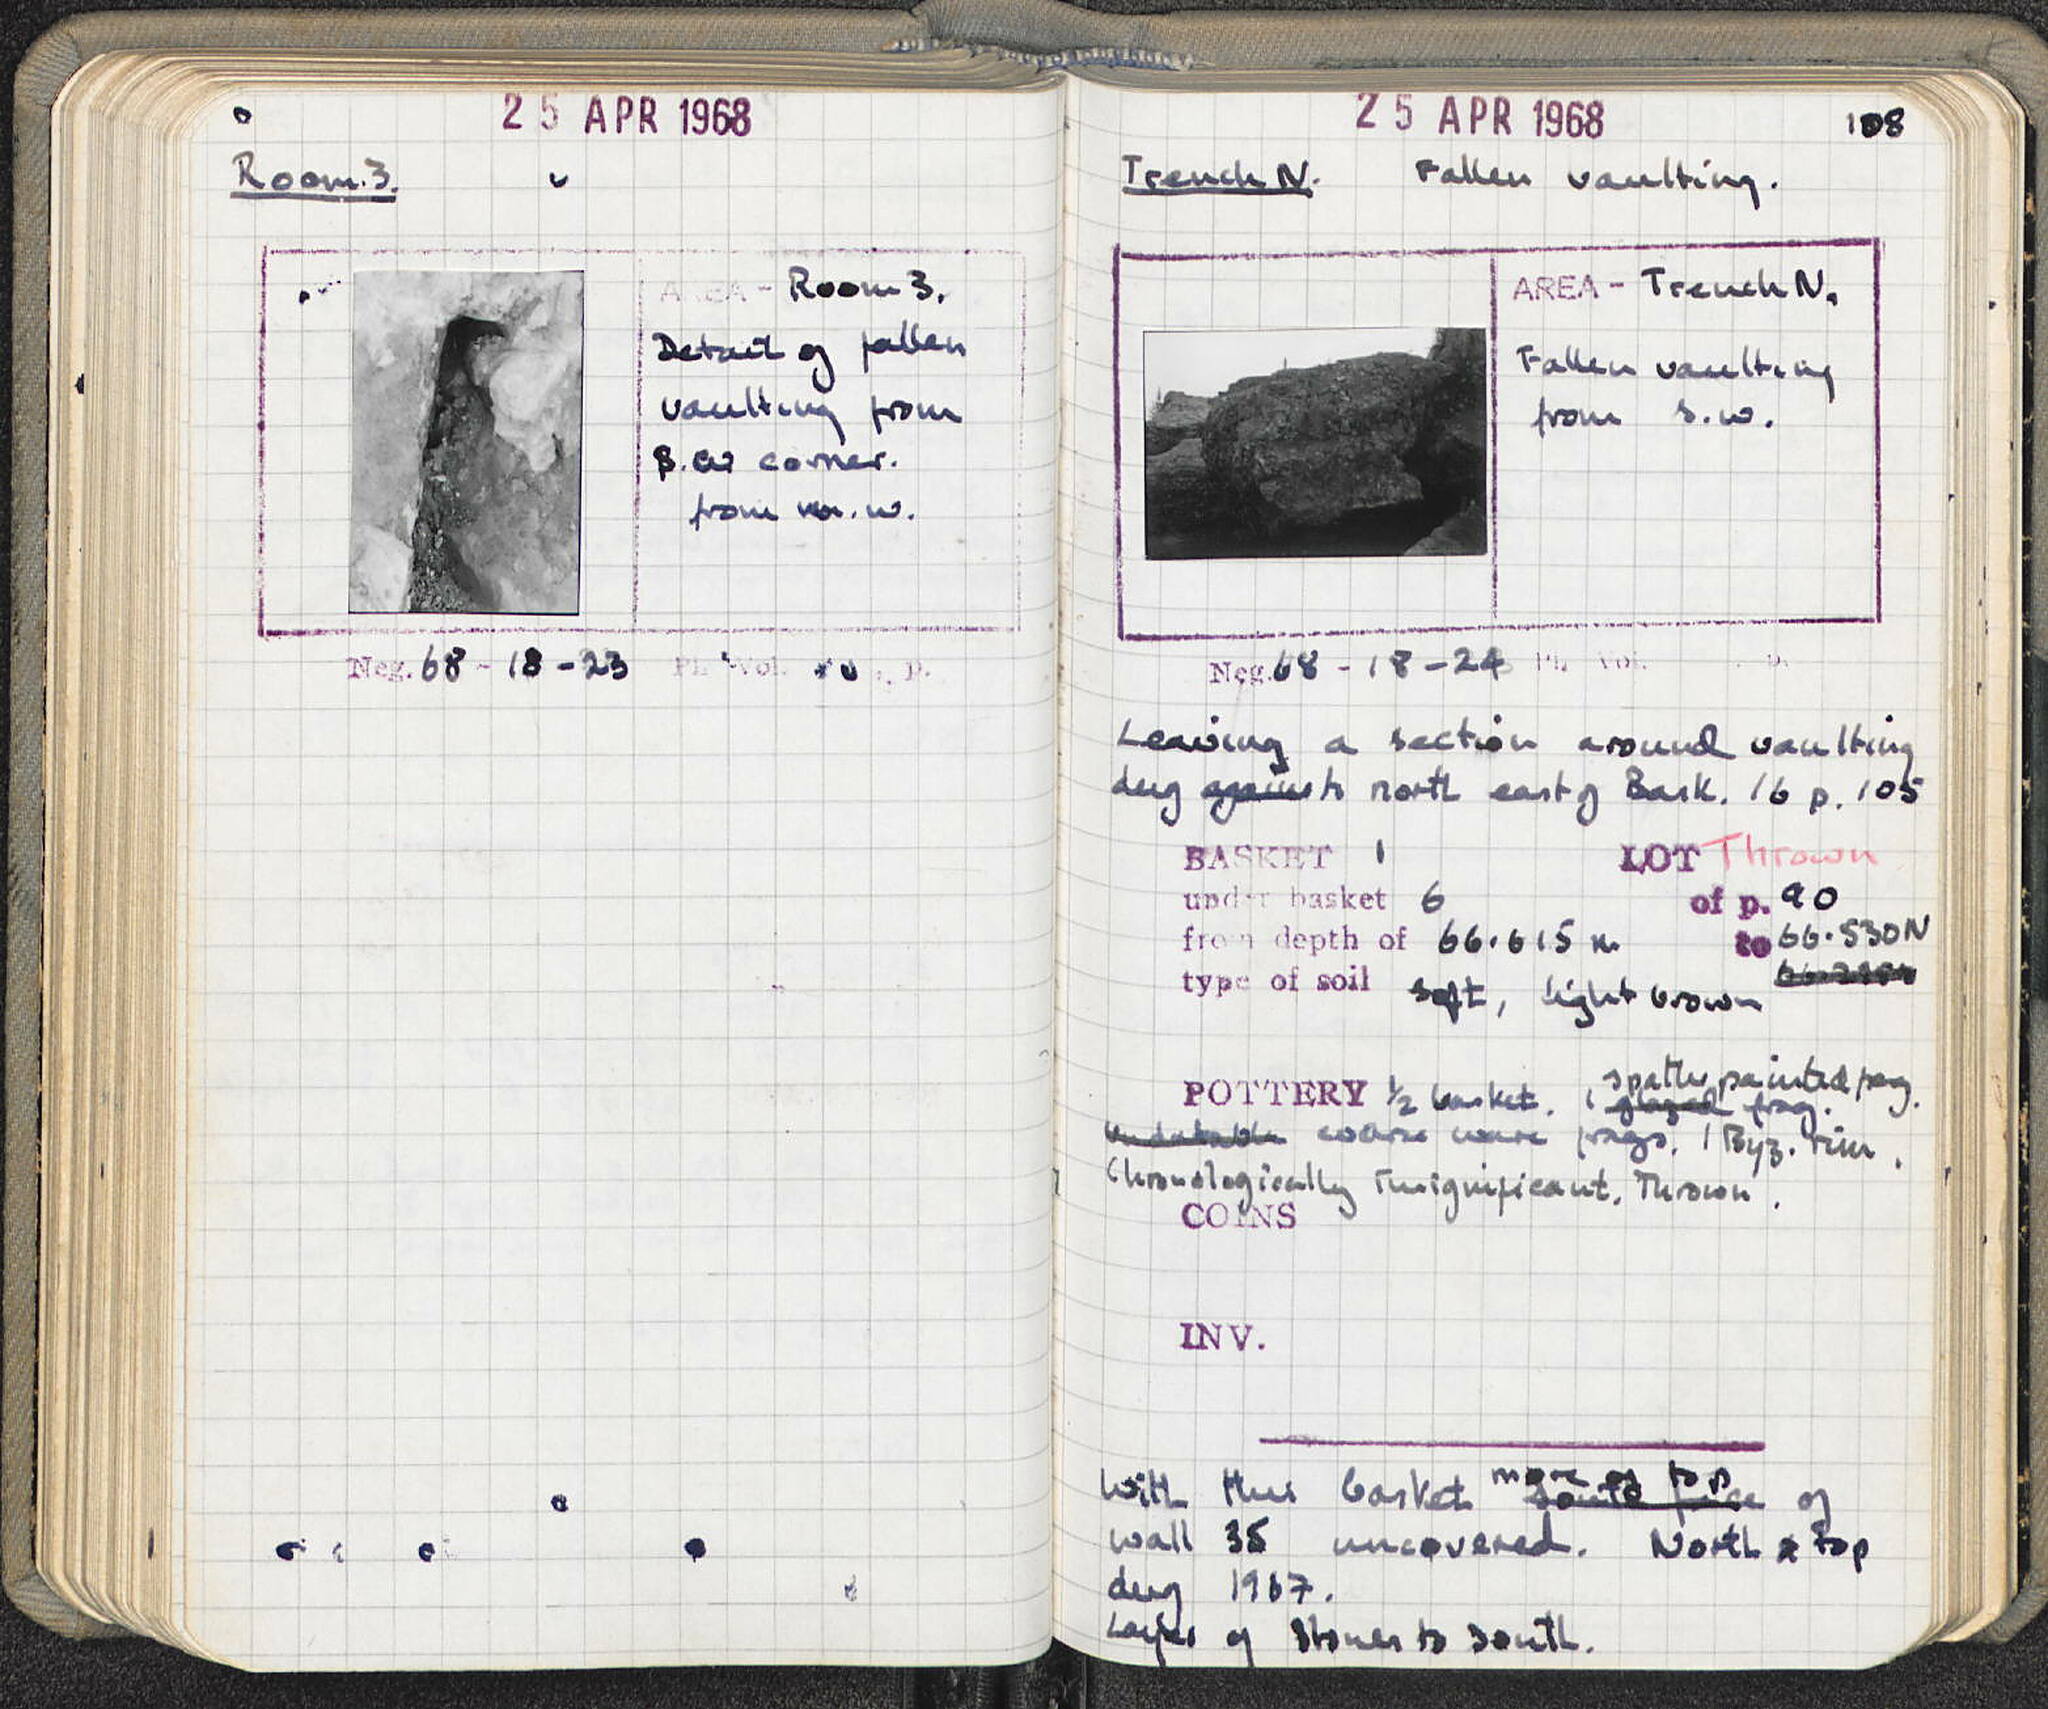 25 APR 1968
Room 3.
AREA - Room 3.
Detail of fallen
vaulting from
S.W corner.
from n.w.
Neg. 68 - 18 - 23 Pl. Vol. , p.
25 APR 1968 108
Trench N. Fallen vaulting.
AREA - Trench N.
Fallen vaulting
from s.w.
Neg. 68 - 18 - 24 Pl. Vol. p.
Leaving a section around vaulting
dug against to north east of Bask. 16 p. 105
BASKET 1 LOT Thrown
under basket 6 of p. 90
from depth of 66.615 m. to 66.530 N
type of soil soft, light brown
spatter painted frag.
POTTERY ½ basket. 1 glazed frag.
undatable coarse ware frags. 1 Byz. rim.
Chronologically insignificant. Thrown.
COINS
INV.
more of top
With this basket south face of
wall 35 uncovered. North & top
dug 1967.
Layer of stones to south.